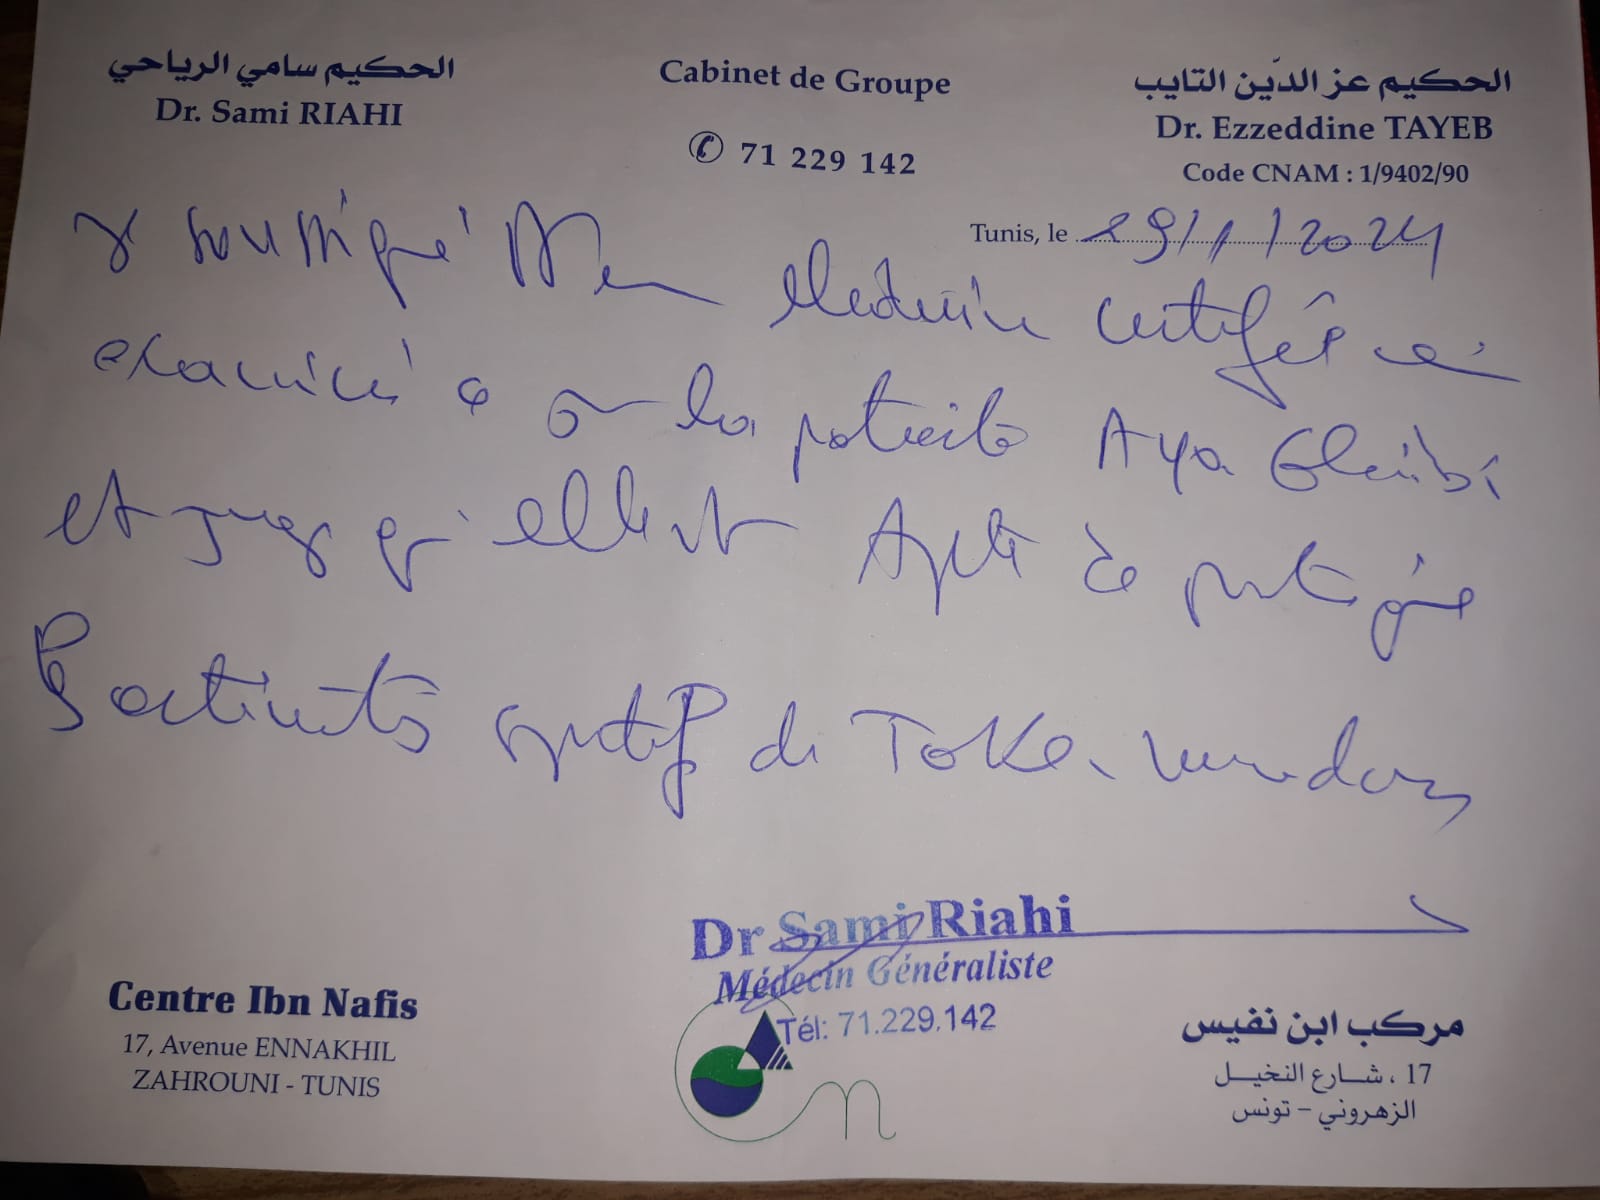 الحكيم سامي الرياحي
Dr. Sami RIAHI
Cabinet de Groupe
✆ 71 229 142
الحكيم عز الدّين التايب
Dr. Ezzeddine TAYEB
Code CNAM : 1/9402/90
Tunis, le 29/1/2024
Je soussigné Médecin certifie
examiné la patiente Aya
et juge qu'elle est Apte à pratique
l'activité sportif de
Dr Sami Riahi
Médecin Généraliste
Tél: 71.229.142
Centre Ibn Nafis
17, Avenue ENNAKHIL
ZAHROUNI - TUNIS
مركب ابن نفيس
17 ، شارع النخيل
الزهروني - تونس